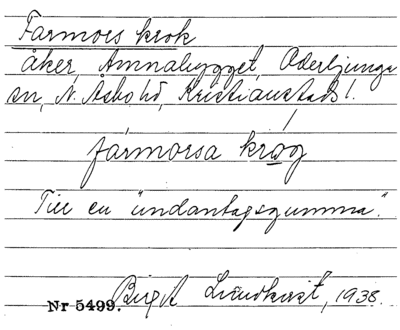 Farmors krok
åker, Amnahygget, Oderljunga
sn, N. Åsbo hd, Kristianstads l.
fármorsa krog
Till en "undantagsgumma".
Birgit Lindkvist, 1938.
Nr 5499.